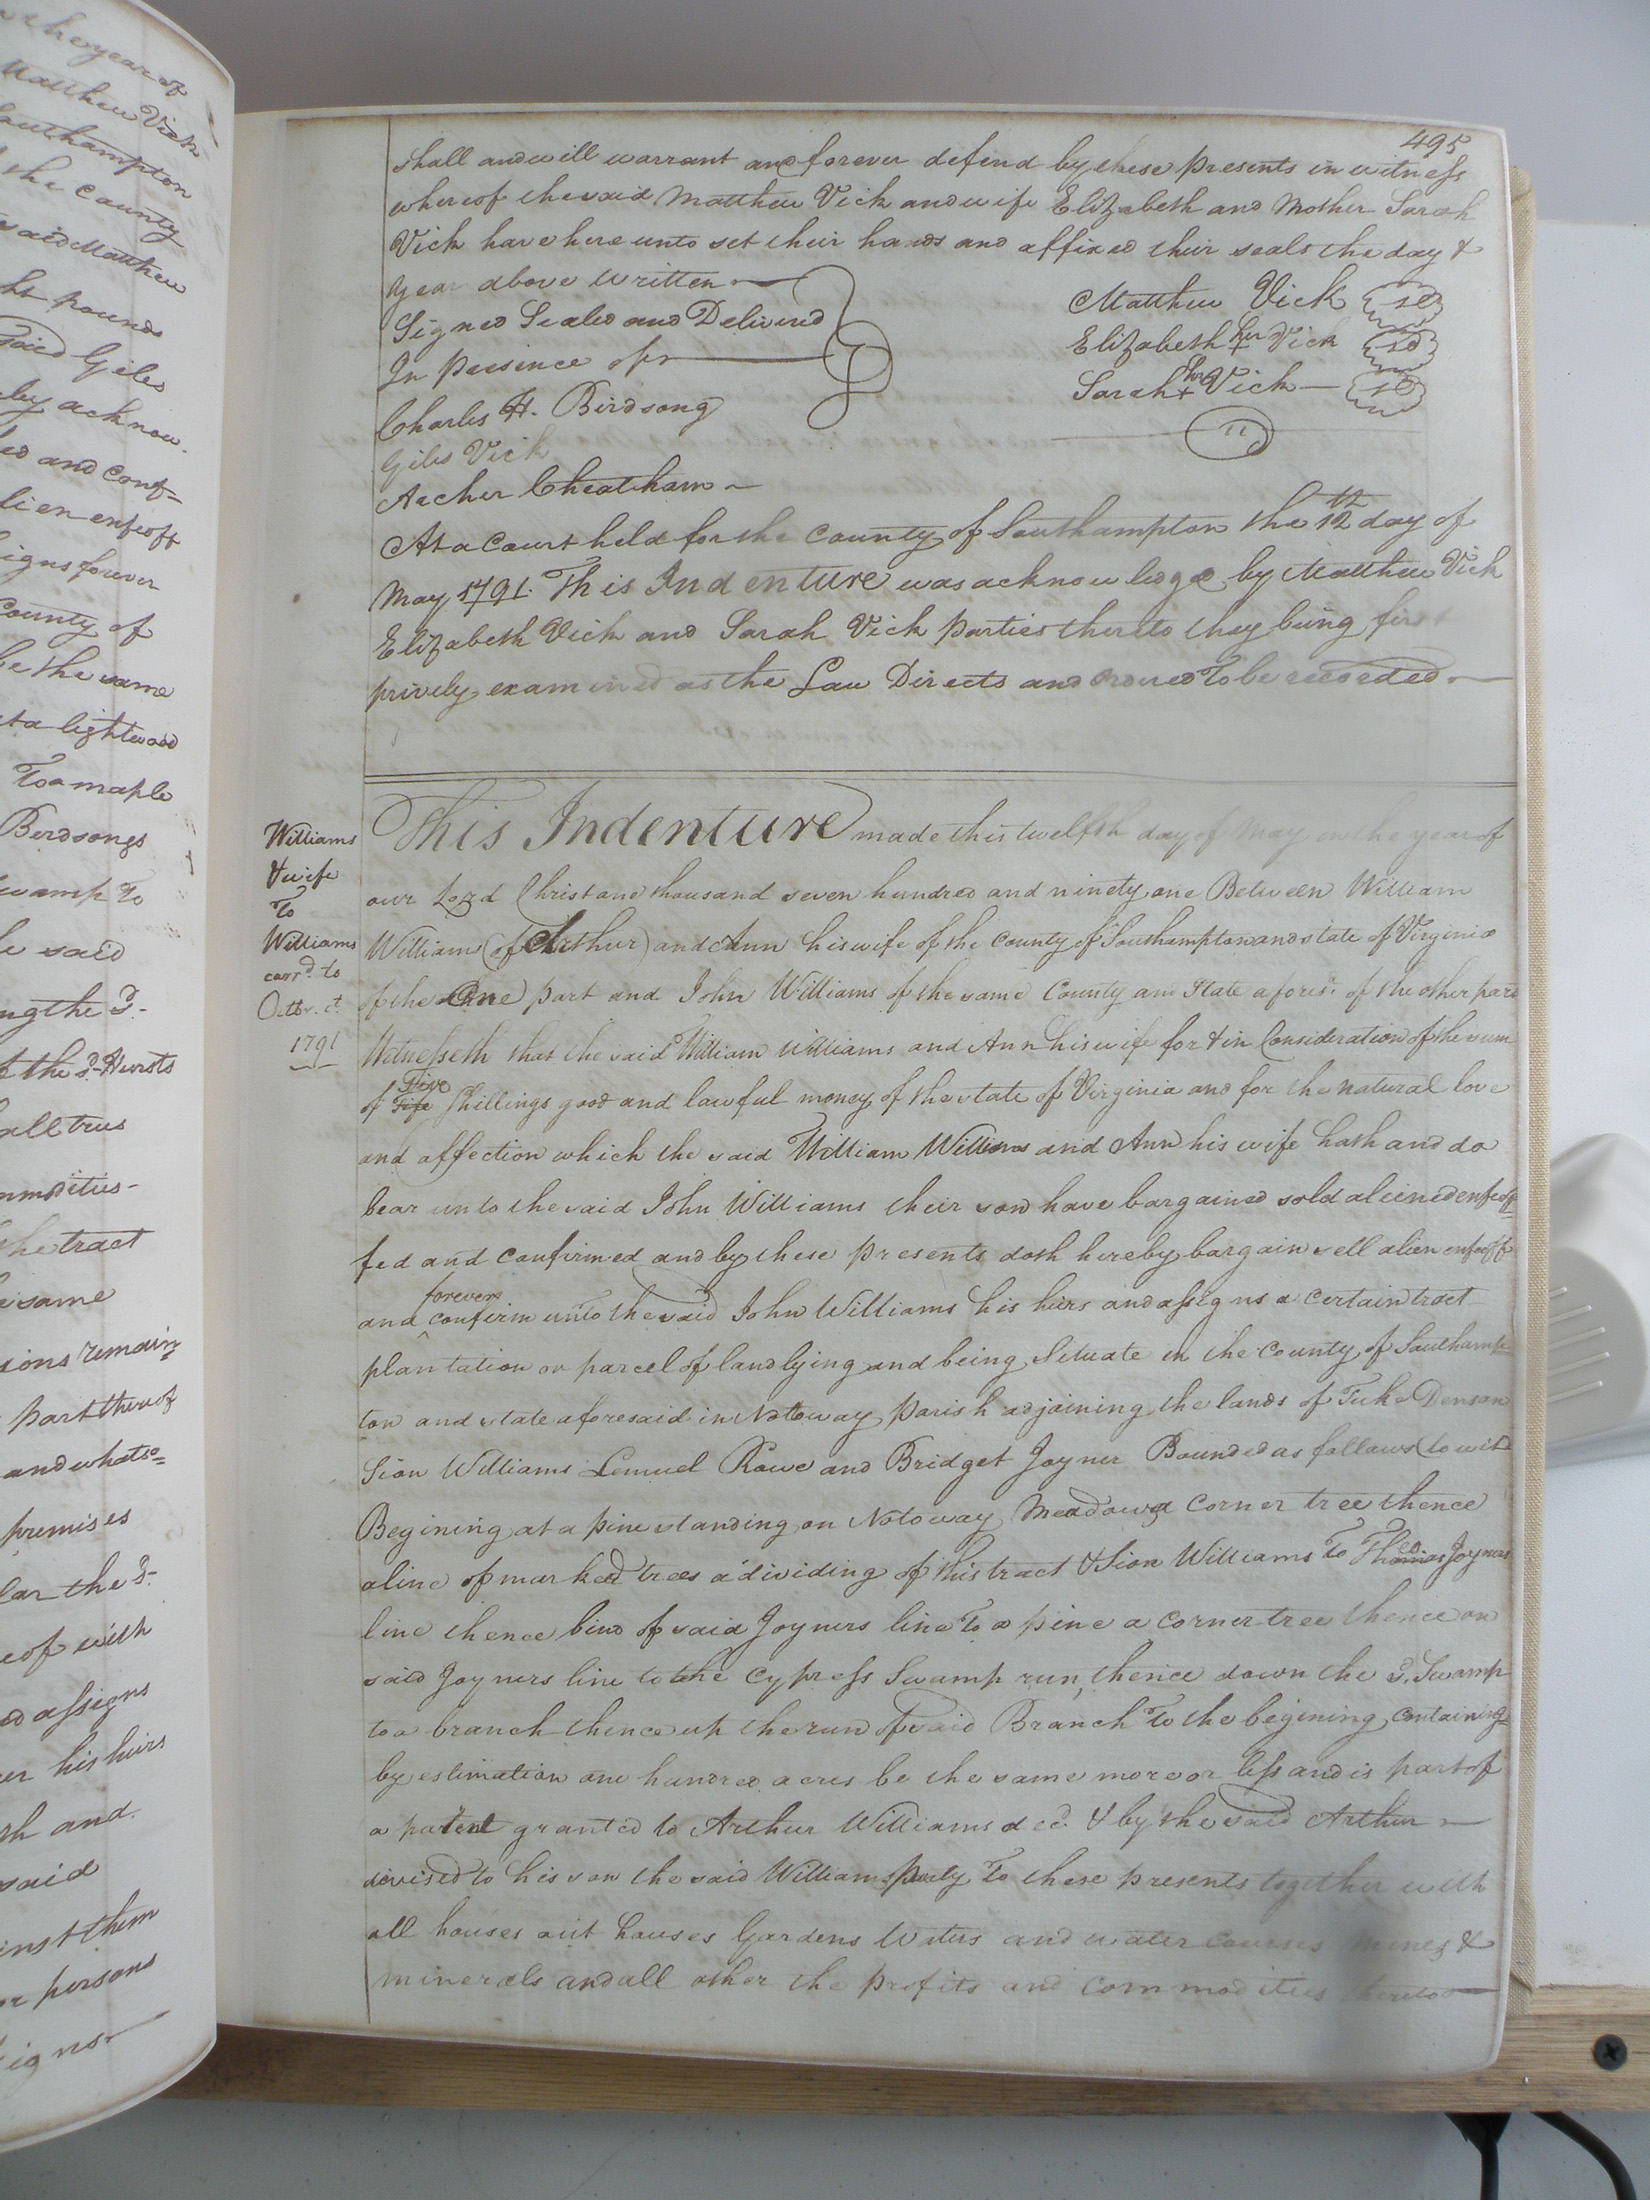 the year of
Matthew Vick
Southampton
the County
said Matthew
pounds
said Giles
by acknow-
ed and conf=
lien enfeoff
signs forever
County of
be the same
at a lightwood
To a maple
Birdsongs
swamp To
said
ng the s.d
the s.d Hursts
all trees
mmodities-
the tract
same
ions remain=
part thereof
and whatso=
premises
lar the s.d
eof with
ed assigns
er his heirs
th and
said
inst them
or persons
igns
495
shall and will warrant and forever defend by these presents in witness
whereof the said Matthew Vick and wife Elizabeth and Mother Sarah
Vick have hereunto set their hands and affixed their seals the day &
year above written
Signed Sealed and Delivered
In Presence of
Charles H. Birdsong
Giles Vick
Archer Cheatham
Matthew Vick
Elizabeth her + Vick
Sarah her + Vick
At a Court held for the County of Southampton the 12th day of
May 1791. This Indenture was acknowledge by Matthew Vick
Elizabeth Vick and Sarah Vick parties thereto they being first
privily examined as the Law Directs and ordred To be recorded
Williams
& wife
To
Williams
carr.d to
Octbr. ct.
1791
This Indenture made this twelfth day of May in the year of
our Lord Christ one thousand seven hundred and ninety one Between William
William (of Arthur) and Ann his wife of the County of Southampton and state of Virginia
of the One part and John Williams of the same County and State afores.d of the other part
Witnesseth that the said William Williams and Ann his wife for & in Consideration of the sum
of Five Shillings good and lawful money of the state of Virginia and for the natural love
and affection which the said William Williams and Ann his wife hath and do
bear unto the said John Williams their son have bargained sold aliened enfeof=
fed and confirmed and by these presents doth hereby bargain sell alien enfeoff
and forever confirm unto the said John Williams his heirs and assigns a certain tract
plantation or parcel of land lying and being Situate in the County of Southamp=
ton and state aforesaid in Nottoway parish adjoining the lands of Tuke Denson
Sion Williams Lemuel Rowe and Bridget Joyner Bounded as follows (to wit)
Begining at a pine standing on Notoway Meadow a Corner tree thence
a line of marked trees a dividing of this tract & Sion Williams To Thomas Joyners
line thence bind of said Joyners line To a pine a corner tree thence on
said Joyners line to the Cypress Swamp run, thence down the s.d Swamp
to a branch thence up the run of said Branch To the begining, containing
by estimation one hundred acres be the same more or less and is part of
a patent granted to Arthur Williams dec.d & by the said Arthur
devised to his son the said William party To these presents together with
all houses out houses Gardens Waters and water courses mines &
minerals and all other the profits and commodities thereto